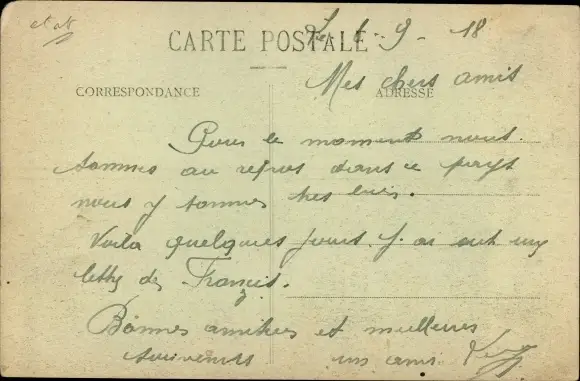 CARTE POSTALE
Le 6-9-18
CORRESPONDANCE
ADRESSE
Mes chers amis
Pour le moment nous
sommes au repos dans ce pays
nous y sommes tres bien.
Voila quelques jours j'ai eut une
lettre de Francis.
Bonnes amities et meilleurs
souvenirs un ami